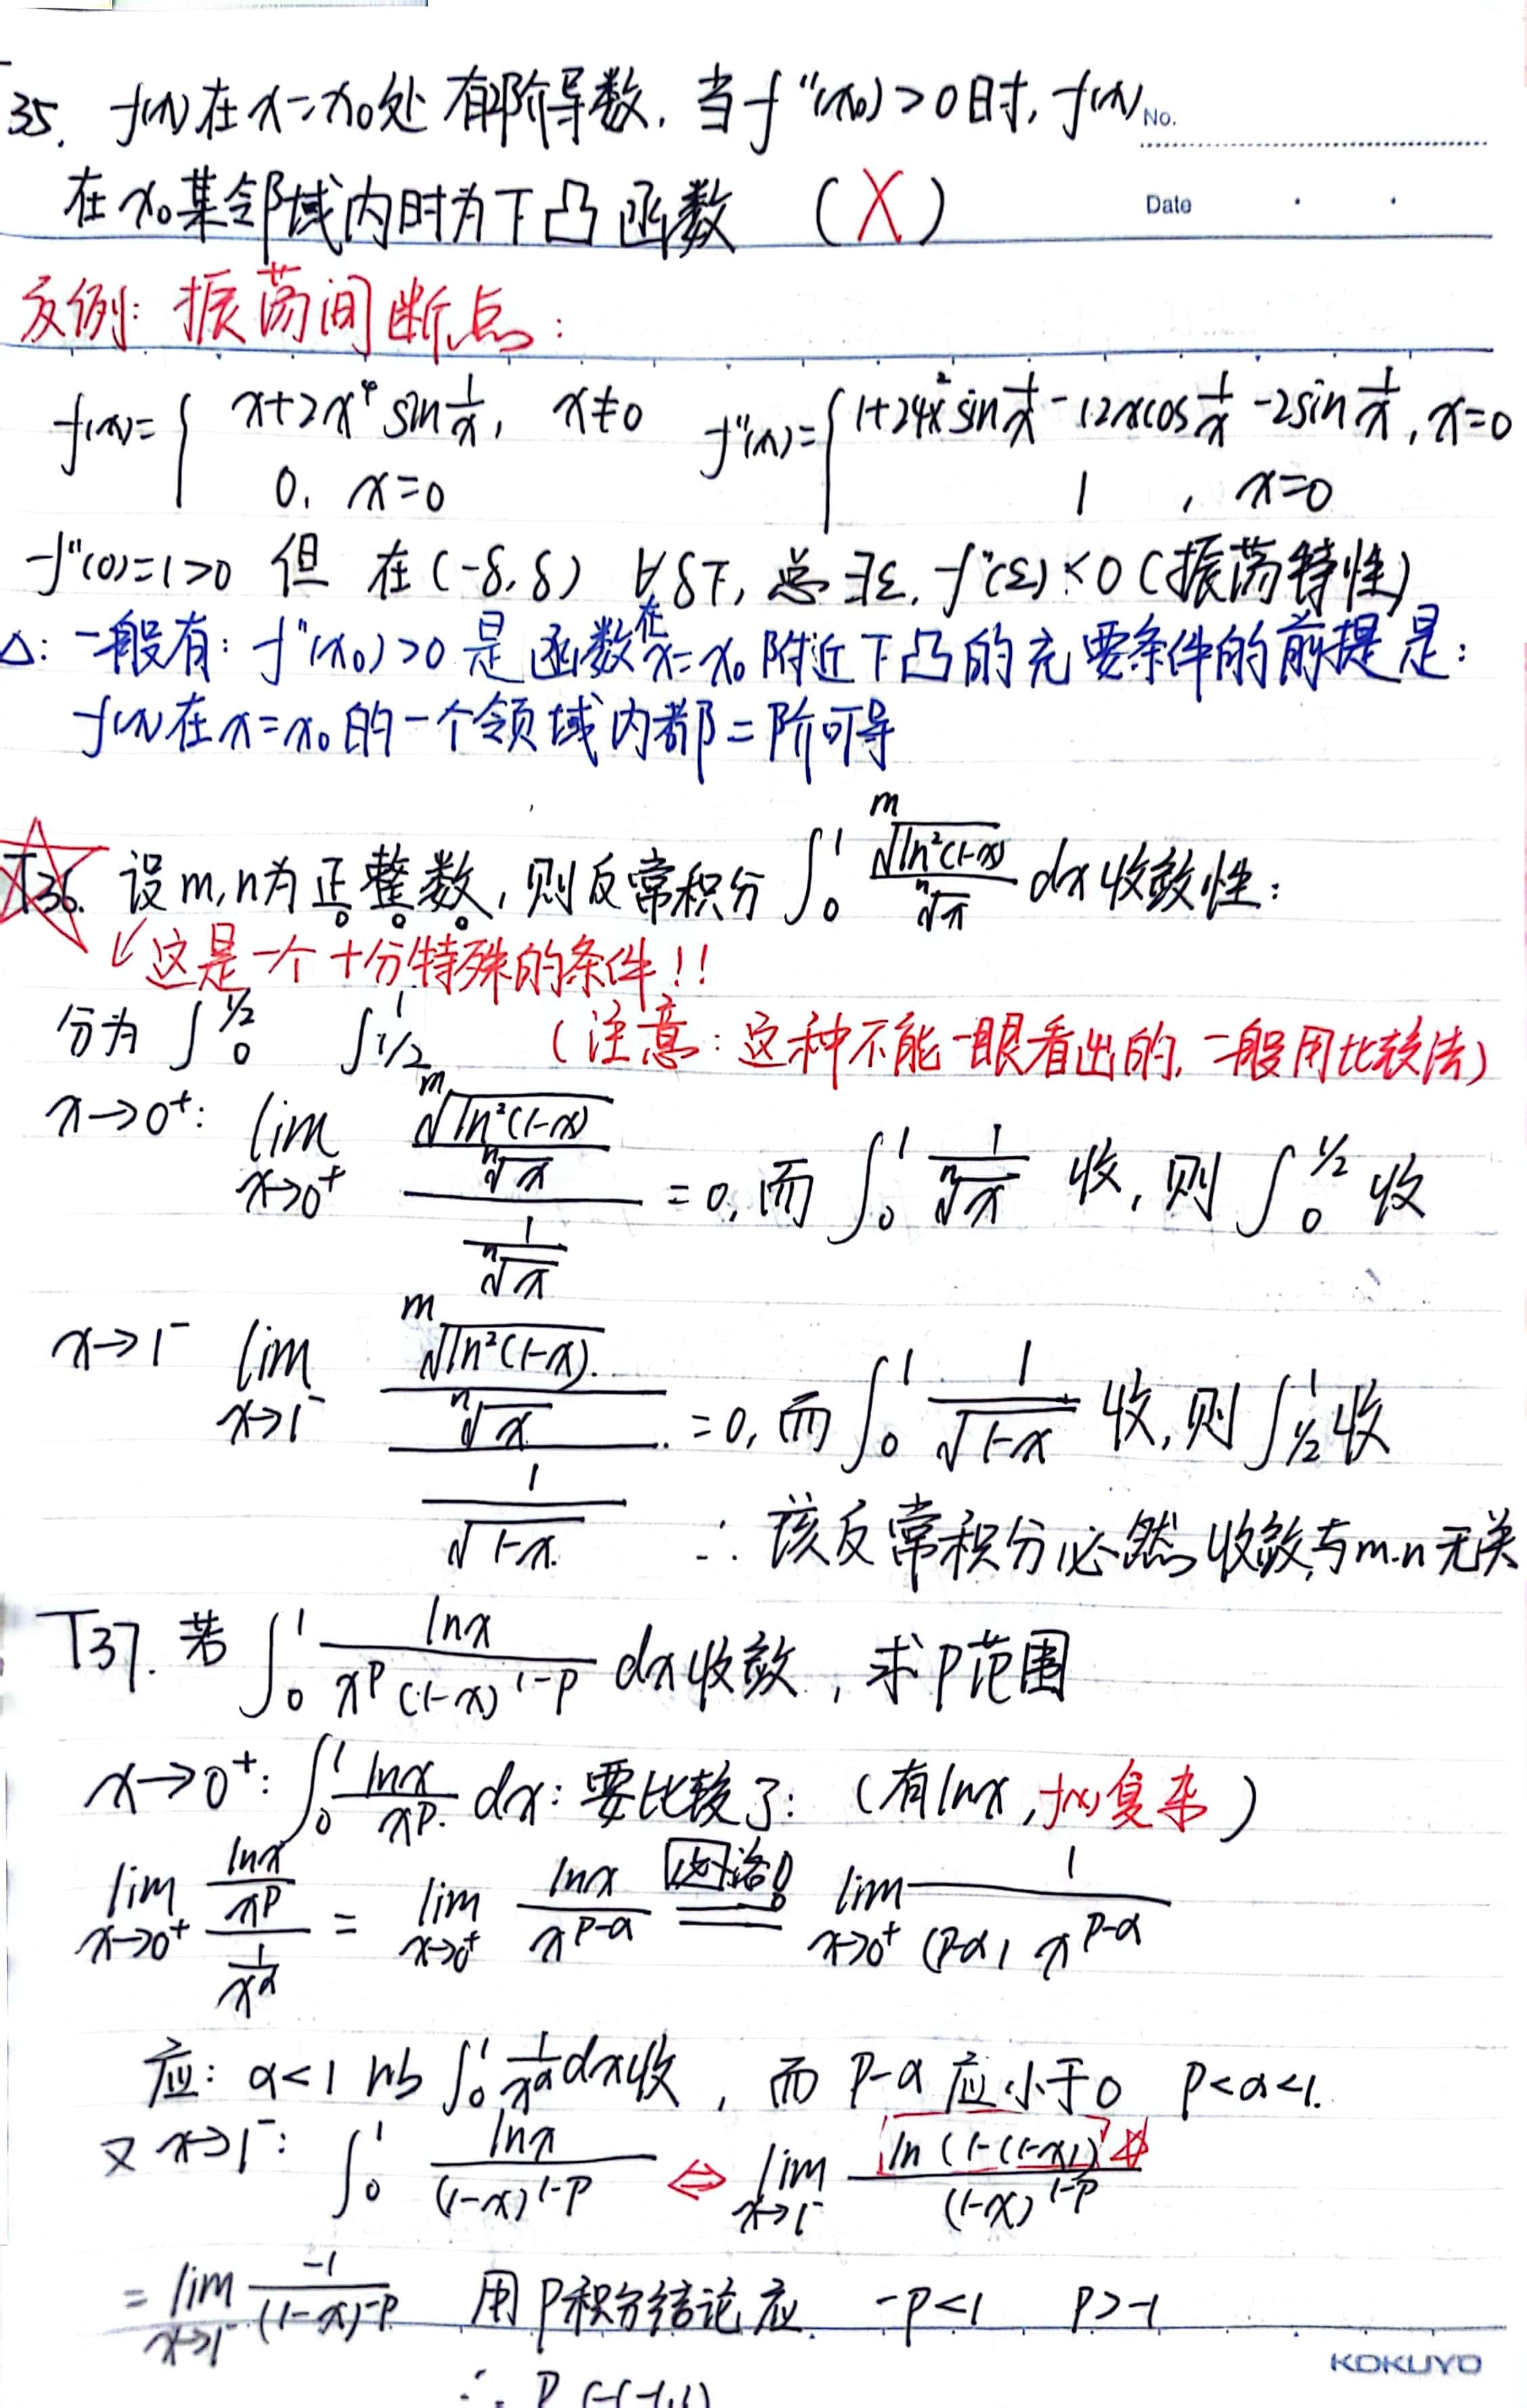 35. f(x)在x=x₀处有二阶导数. 当f"(x₀)>0时, f(x)
No.
在x₀某邻域内时为下凸函数 (X)
Date
反例: 振荡间断点:
f(x)={ x+2x⁴sin1/x, x≠0 f"(x)={ 1+24x²sin1/x-12xcos1/x-2sin1/x, x=0
0, x=0 1, x=0
f"(0)=1>0 但 在(-δ,δ) ∀δ下, 总∃ε, f"(ε)<0 (振荡特性)
△: 一般有: f"(x₀)>0 是函数在x=x₀附近下凸的充要条件的前提是:
f(x)在x=x₀的一个领域内都二阶可导
T36. 设m,n为正整数, 则反常积分∫₀¹ ᵐ√ln²(1-x)/ⁿ√x dx收敛性:
↙这是一个十分特殊的条件!!
分为 ∫₀^1/2 ∫_1/2^1 (注意: 这种不能一眼看出的, 一般用比较法)
x→0⁺: lim x→0⁺ (ᵐ√ln²(1-x)/ⁿ√x)/(1/ⁿ√x) =0, 而∫₀¹ 1/ⁿ√x 收, 则∫₀^1/2 收
x→1⁻ lim x→1⁻ (ᵐ√ln²(1-x)/ⁿ√x)/(1/√1-x) =0, 而∫₀¹ 1/√1-x 收, 则∫_1/2^1 收
∴ 该反常积分必然收敛与m.n无关
T37. 若∫₀¹ lnx/(x^p(1-x)^1-p) dx收敛, 求p范围
x→0⁺: ∫₀¹ lnx/x^p dx: 要比较了: (有lnx, f(x)复杂)
lim x→0⁺ (lnx/x^p)/(1/x^α) = lim x→0⁺ lnx/x^p-α ==洛== lim x→0⁺ 1/((p-α) x^p-α)
应: α<1 以 ∫₀¹ 1/x^α dx收, 而 p-α应小于0 p<α<1.
又x→1⁻: ∫₀¹ lnx/(1-x)^1-p ⇔ lim x→1⁻ ln(1-(1-x))/(1-x)^1-p
= lim x→1⁻ -1/(1-x)^-p 用p积分结论应 -p<1 p>-1
∴ p∈(-1,1)
KOKUYO